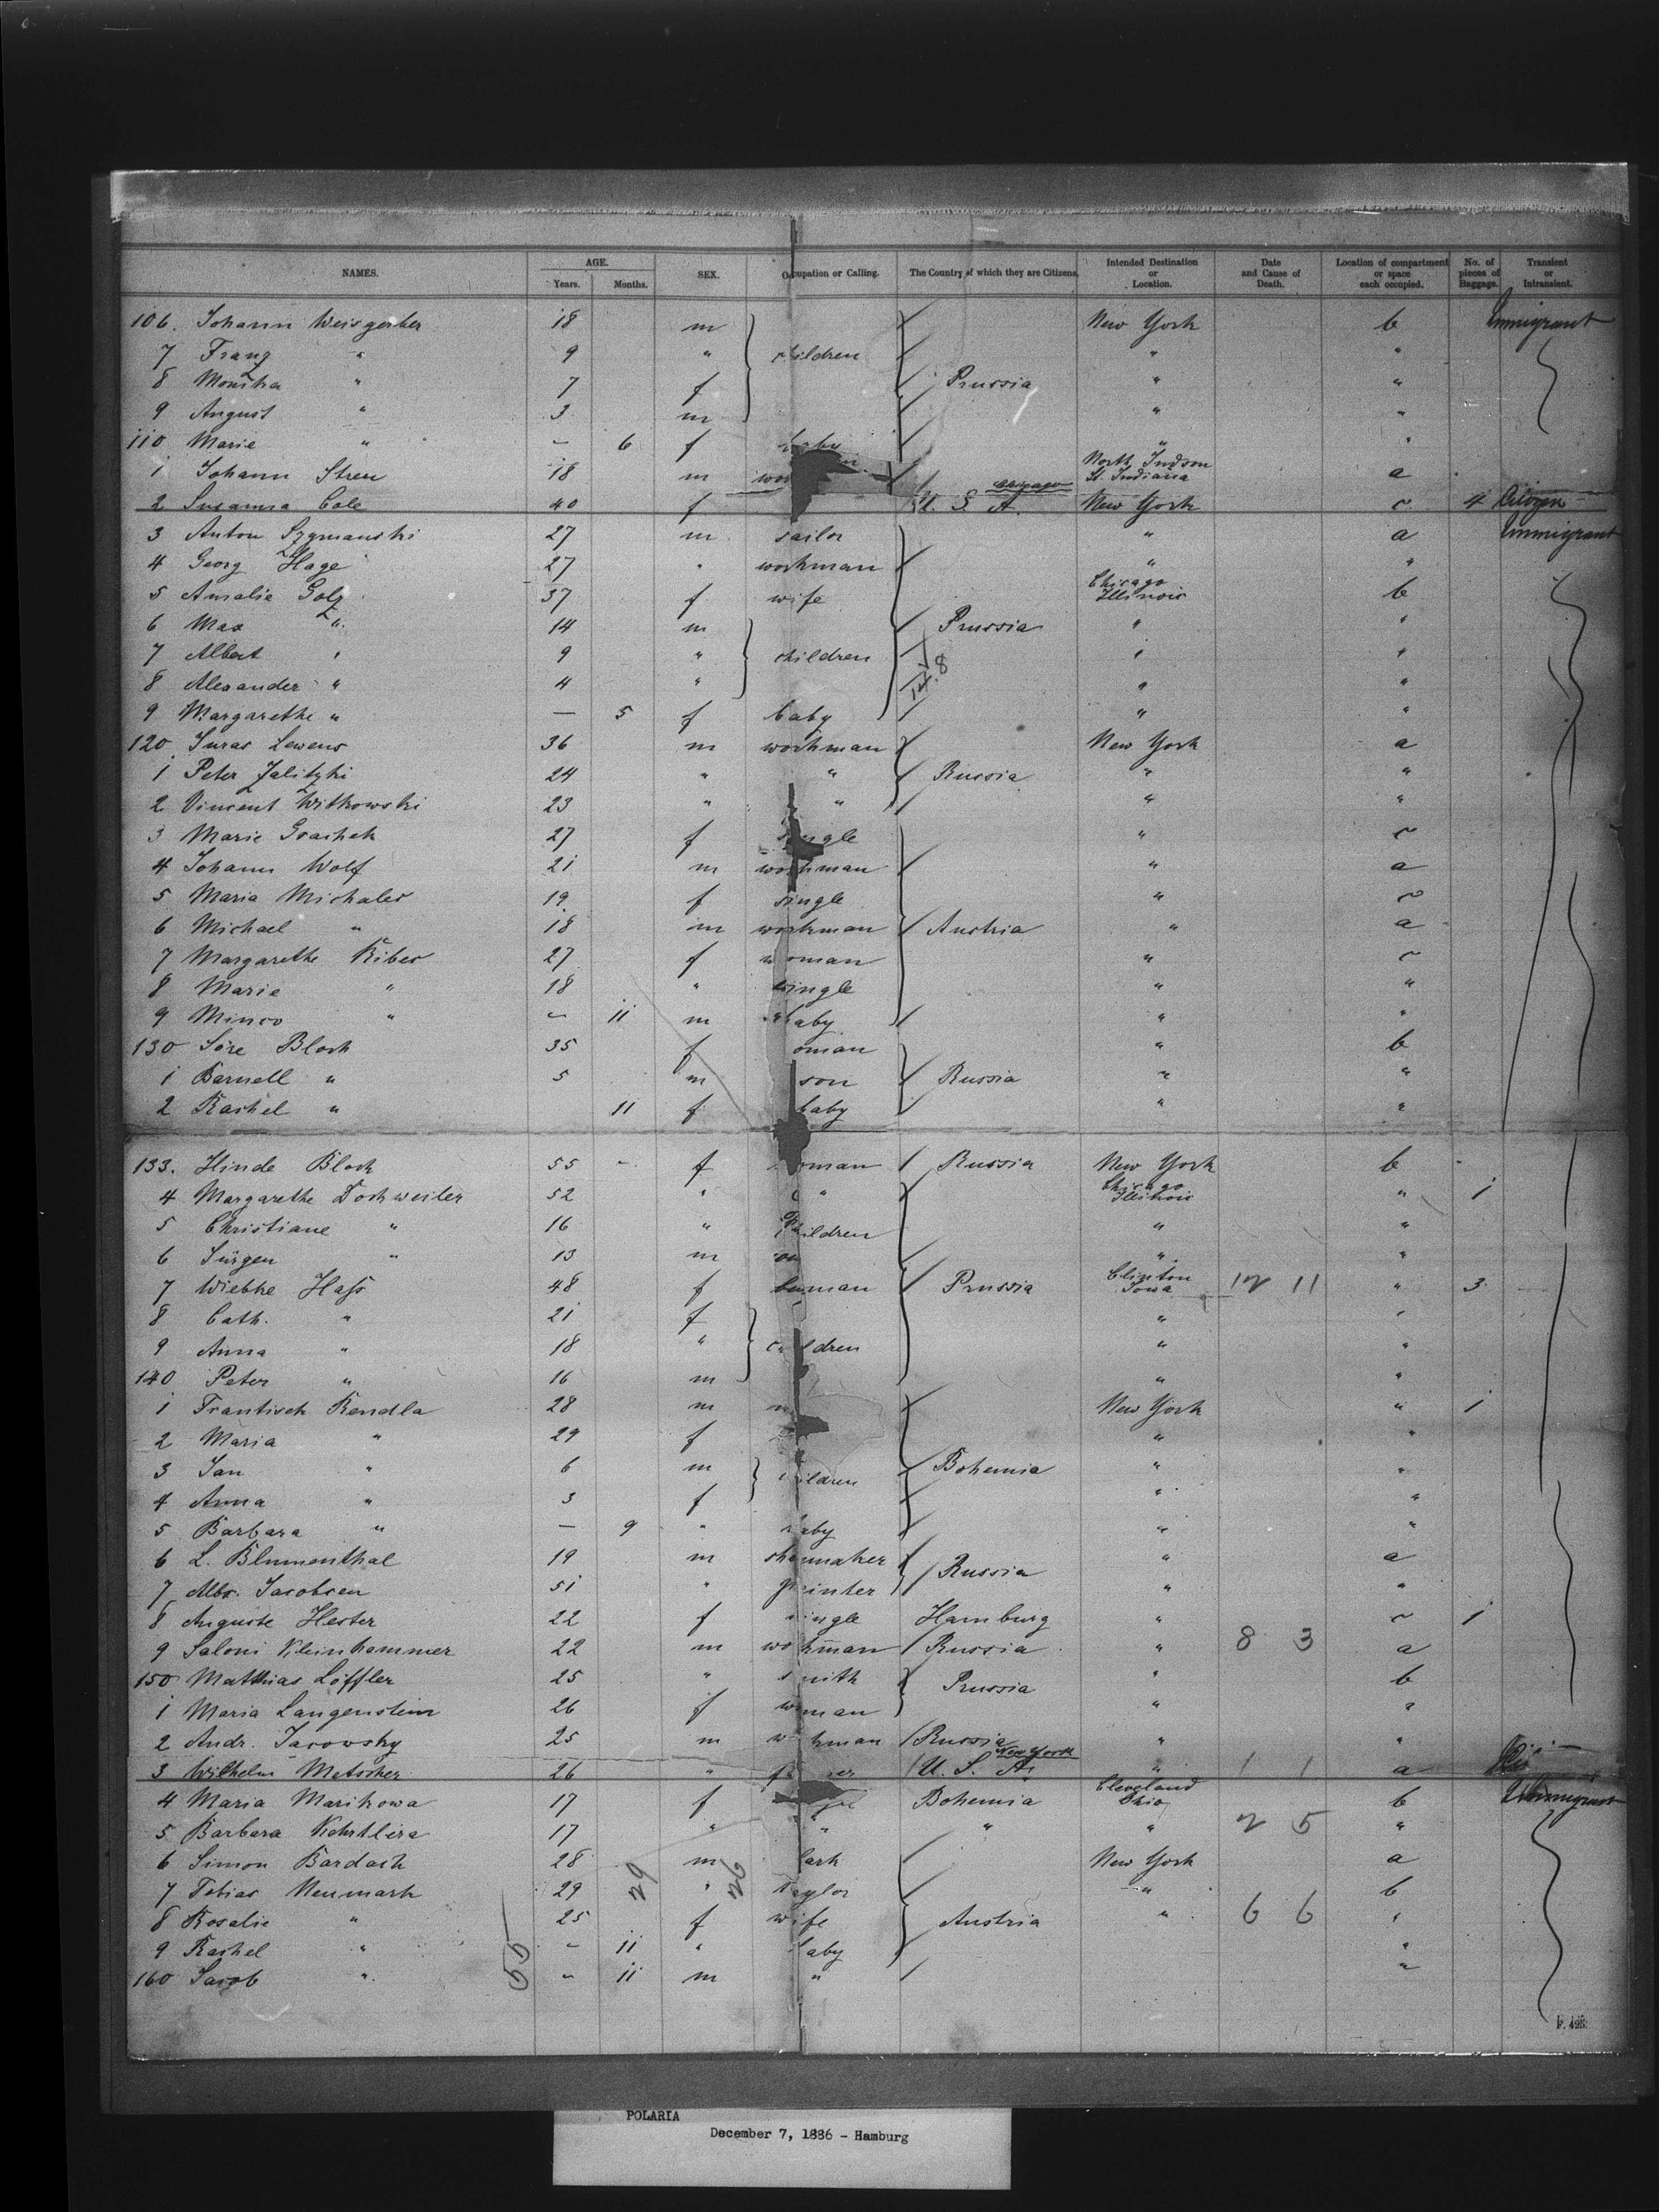 NAMES. AGE. Years. Months. SEX. Occupation or Calling. The Country of which they are Citizens. Intended Destination or Location. Date and Cause of Death. Location of compartment or space each occupied. No. of pieces of Baggage. Transient or Intransient.
106. Johann Weisgerber 18 m New York b Immigrant
7 Franz " 9 " children " "
8 Monika " 7 f Prussia " "
9 August " 3 m " "
110 Marie " - 6 f baby " "
1 Johann Streu 18 m North Judson St. Indiana a
2 Susanna Cole 40 f U. S. A. Chicago New York c 4 Citizen
3 Anton Szymanski 27 m sailor " a Immigrant
4 Georg Hage 27 " workman " "
5 Amalie Golz 37 f wife Chicago Illinois b
6 Max " 14 m Prussia " "
7 Albert " 9 " children " "
8 Alexander " 4 " " "
9 Margarethe " — 5 f baby " "
120 Juras Lewens 36 m workman New York a
1 Peter Zalitzki 24 " " Russia " "
2 Vincent Witkowski 23 " " " "
3 Marie 27 f single " c
4 Johann Wolf 21 m workman " a
5 Maria Michales 19 f single " c
6 Michael " 18 m workman Austria " a
7 Margarethe Ribes 27 f woman " c
8 Marie " 18 " single " "
9 Minco " - 11 m baby " "
130 Sore Bloch 35 f woman " b
1 Barnell " 5 m son Russia " "
2 Rachel " 11 f baby " "
133. Hinde Bloch 55 - f woman Russia New York b
4 Margarethe Dochweiler 52 " " Chicago Illinois " 1
5 Christiane " 16 " children " "
6 Jürgen " 13 m " "
7 Wiebke Hass 48 f woman Prussia Clinton Iowa 12 11 " 3
8 Cath. " 21 f " "
9 Anna " 18 " children " "
140 Peter " 16 m " "
1 Frantisek Rendla 28 m New York " 1
2 Maria " 29 f " "
3 Jan " 6 m children Bohemia " "
4 Anna " 3 f " "
5 Barbara " — 9 " baby " "
6 L. Blumenthal 19 m shoemaker Russia " a
7 Jacobsen 51 " printer " "
8 Auguste Hester 22 f single Hamburg " c 1
9 Saloni Kleinhammer 22 m workman Russia " 8 3 a
150 Matthias Löffler 25 " smith Prussia " b
1 Maria Langenstein 26 f woman " "
2 Andr. Jacowsky 25 m workman Russia " "
3 Wilhelm Metscher 26 " U. S. A. New York " 1 1 a
4 Maria Marikowa 17 f Bohemia Cleveland Ohio b Immigrant
5 Barbara 17 " " " " 2 5 "
6 Simon Bardach 28 m New York a
7 Tobias Neumark 29 " taylor " b
8 Rosalie " 25 f wife Austria " 6 6 "
9 Rachel " - 11 " baby "
160 Jacob " - 11 m " "
14.8
29 26
55
P. 425
POLARIA
December 7, 1886 - Hamburg